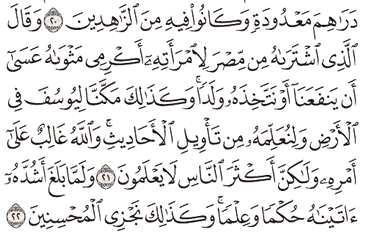 دَرَٰهِمَ مَعْدُودَةٍ وَكَانُوا۟ فِيهِ مِنَ ٱلزَّٰهِدِينَ ٢٠ وَقَالَ
ٱلَّذِى ٱشْتَرَىٰهُ مِن مِّصْرَ لِٱمْرَأَتِهِۦٓ أَكْرِمِى مَثْوَىٰهُ عَسَىٰٓ
أَن يَنفَعَنَآ أَوْ نَتَّخِذَهُۥ وَلَدًا ۚ وَكَذَٰلِكَ مَكَّنَّا لِيُوسُفَ فِى
ٱلْأَرْضِ وَلِنُعَلِّمَهُۥ مِن تَأْوِيلِ ٱلْأَحَادِيثِ ۚ وَٱللَّهُ غَالِبٌ عَلَىٰٓ
أَمْرِهِۦ وَلَٰكِنَّ أَكْثَرَ ٱلنَّاسِ لَا يَعْلَمُونَ ٢١ وَلَمَّا بَلَغَ أَشُدَّهُۥٓ
ءَاتَيْنَٰهُ حُكْمًا وَعِلْمًا ۚ وَكَذَٰلِكَ نَجْزِى ٱلْمُحْسِنِينَ ٢٢